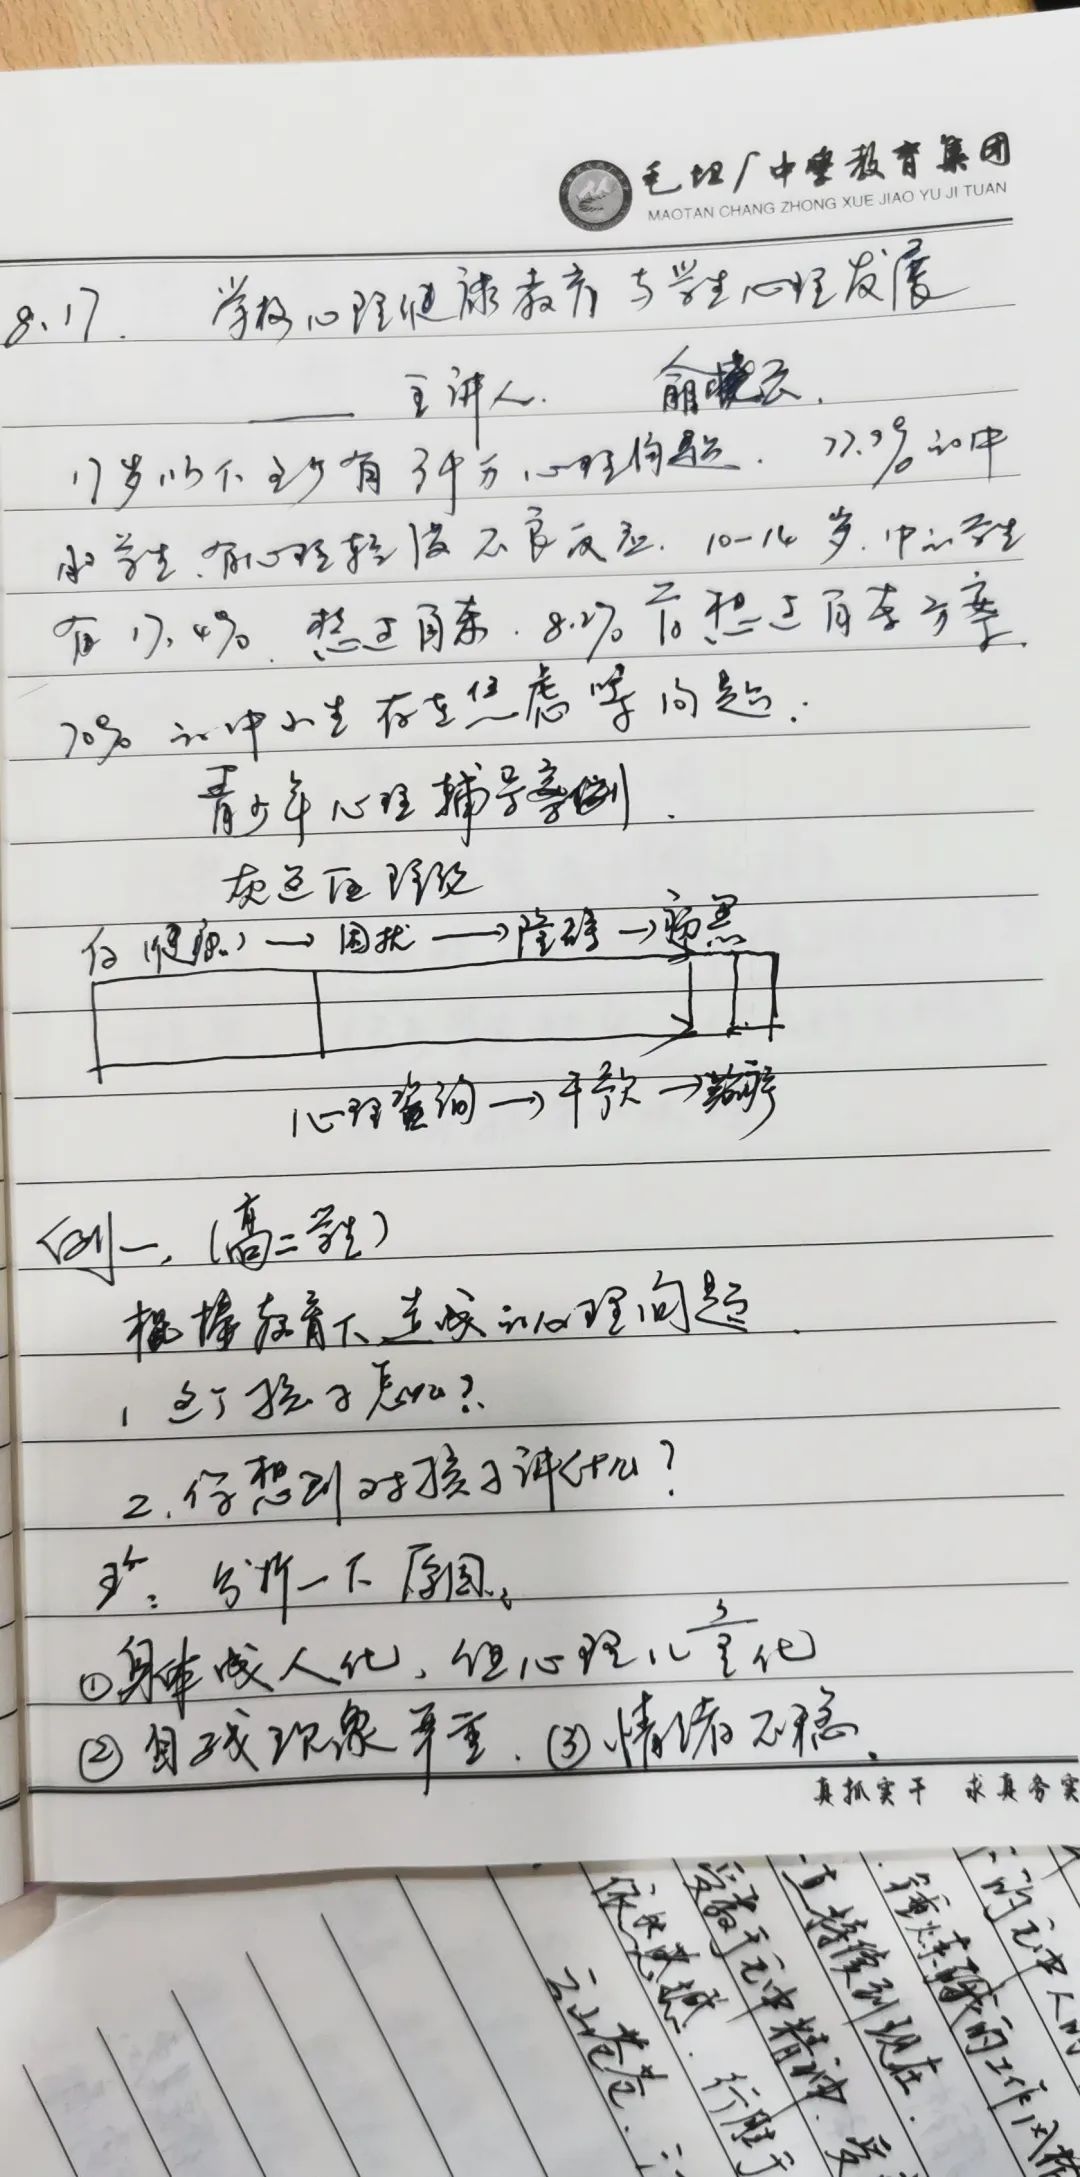 毛坦厂中学教育集团
MAOTAN CHANG ZHONG XUE JIAO YU JI TUAN
8.17. 学校心理健康教育与学生心理发展
——主讲人. 俞晓云.
17岁以下至少有3千万心理问题. 的中
小学生.有心理轻度不良反应. 10-14岁.中小学生
有17.4% 想过自杀. 8.2% 想过自杀方案
70%的中小生存在焦虑等问题.
青少年心理辅导案例.
灰色区理论
(健康)→困扰→障碍→病患
心理咨询→干预→
例一.(高二学生)
棍棒教育下造成的心理问题.
1 这个孩子怎么?
2.你想到对孩子讲什么?
分析一下原因.
①身体成人化,但心理儿童化
②自残现象严重.③情绪不稳.
真抓实干 求真务实
的元中人的
锤炼我的工作风格
直持续到现在.
受教于元中精神.受
行胜于
云山苍苍.